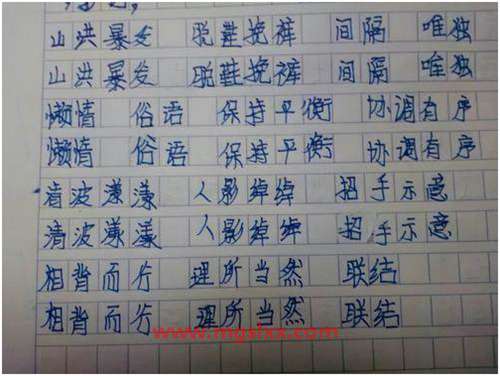 山洪暴发 脱鞋挽裤 间隔 唯独
山洪暴发 脱鞋挽裤 间隔 唯独
懒惰 俗语 保持平衡 协调有序
懒惰 俗语 保持平衡 协调有序
清波漾漾 人影绰绰 招手示意
清波漾漾 人影绰绰 招手示意
相背而行 理所当然 联结
相背而行 理所当然 联结
www.mgshxx.com